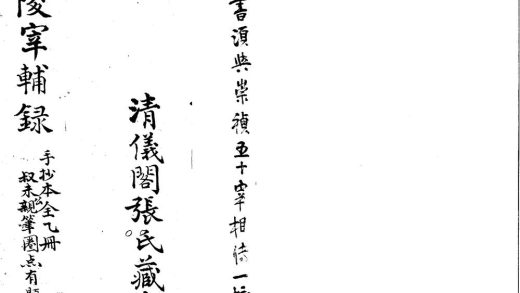 書須與崇禎五十宰相傳一
清儀閣張氏藏
陵宰輔録
手抄本全乙冊
叔未親筆圈点有